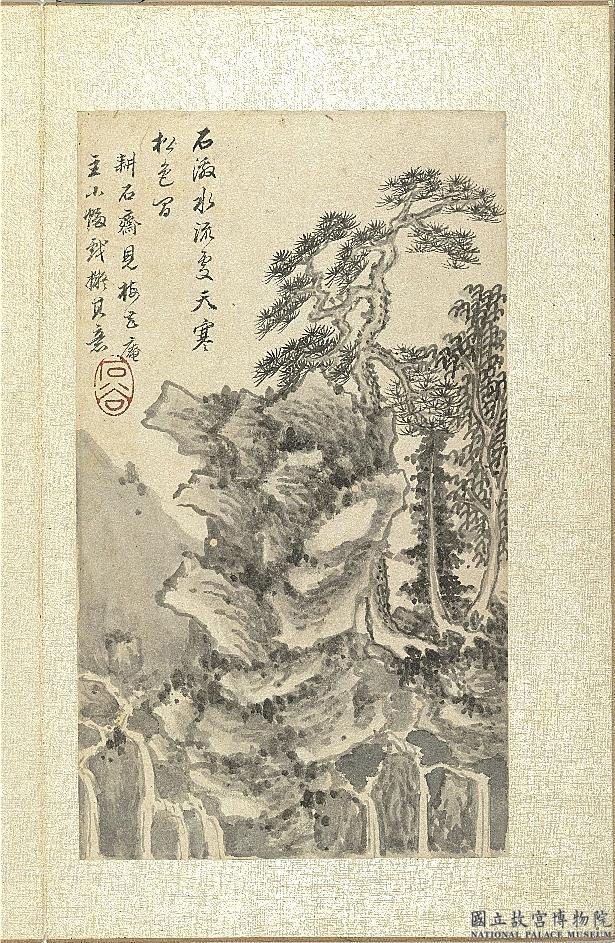 石激水流處天寒
松色間
耕石齋見梅花庵
主小幀戲擬其意
石谷
國立故宮博物院
NATIONAL PALACE MUSEUM